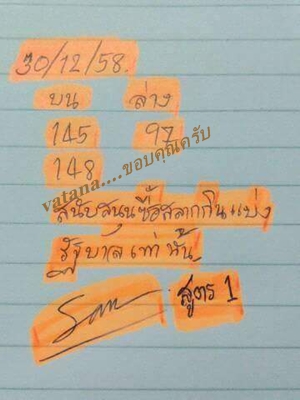 30/12/58.
บน ล่าง
145 97
148
vatana....ขอบคุณครับ
สนับสนุนซื้อสลากกินแบ่ง
รัฐบาลเท่านั้น
สูตร 1